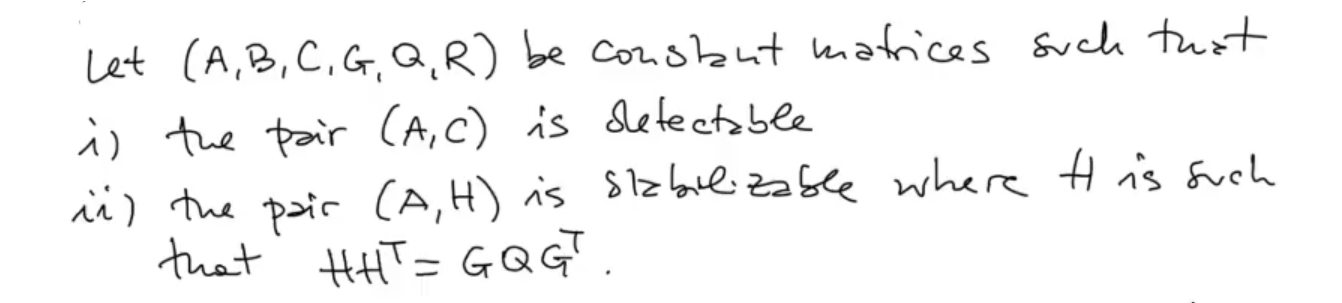 Let (A,B,C,G,Q,R) be constant matrices such that
i) the pair (A,C) is detectable
ii) the pair (A,H) is stabilizable where H is such
that HHᵀ = GQGᵀ.